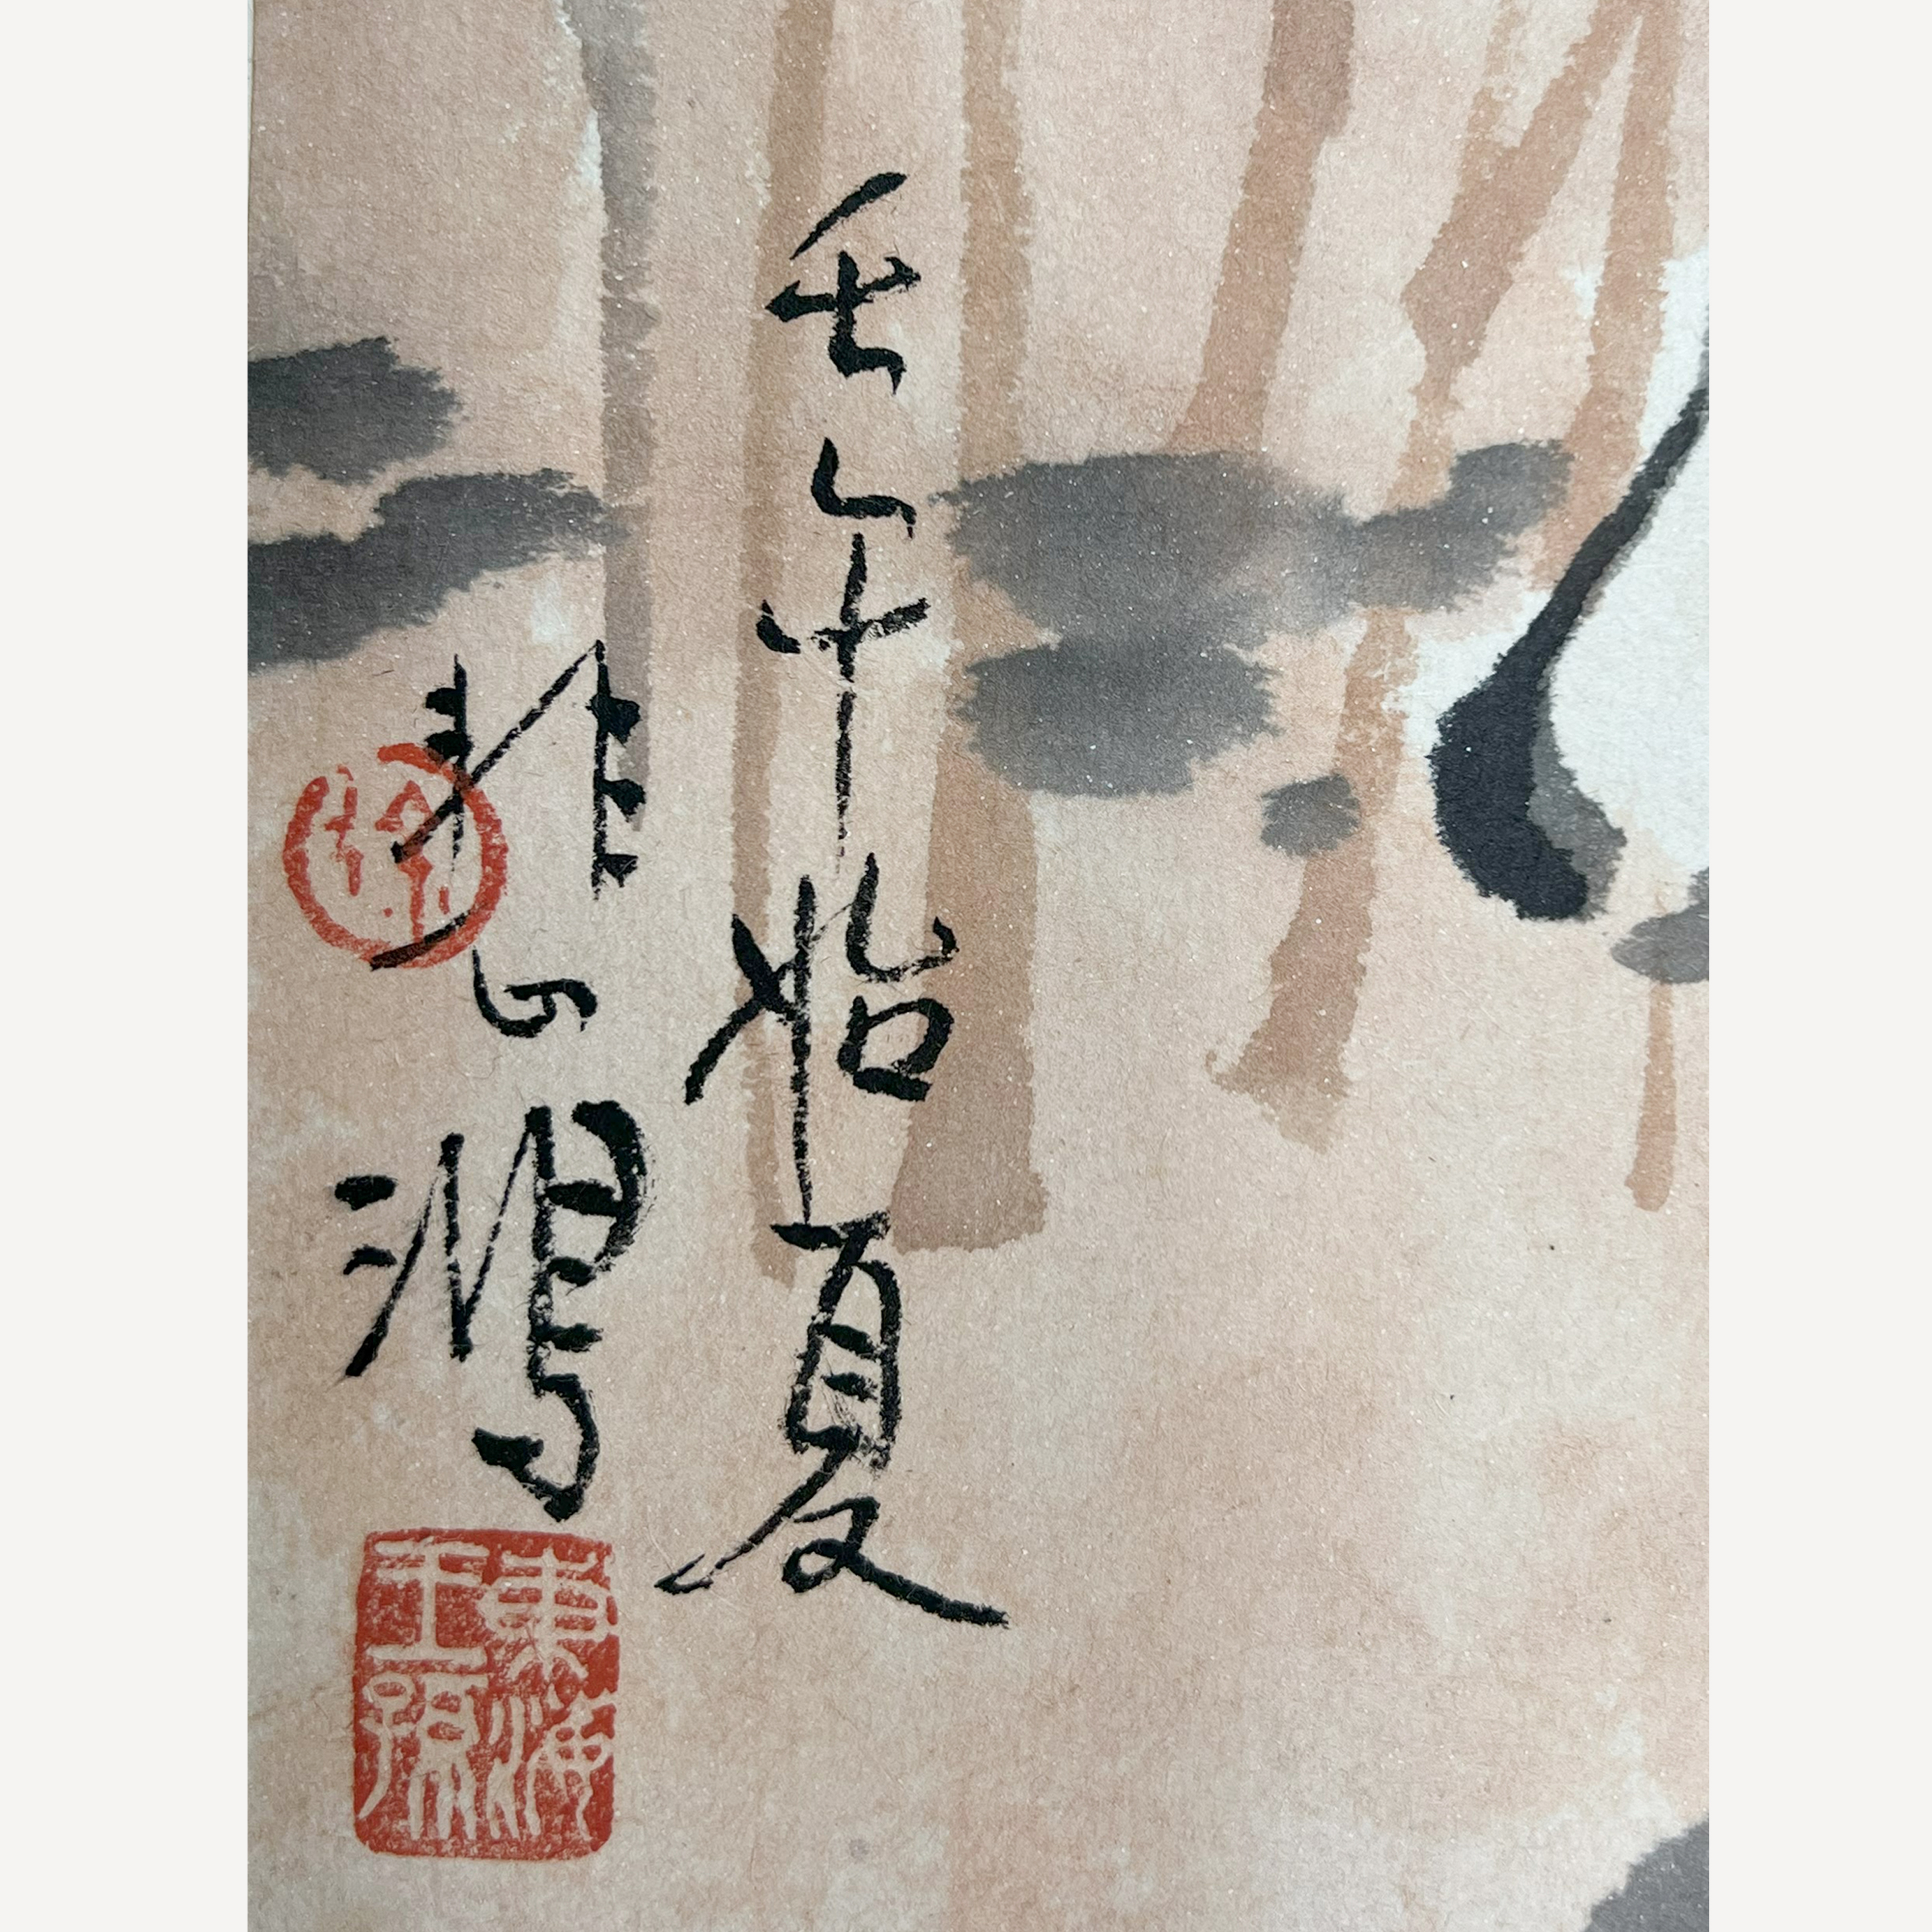 壬午始夏
悲鴻
東海王孫